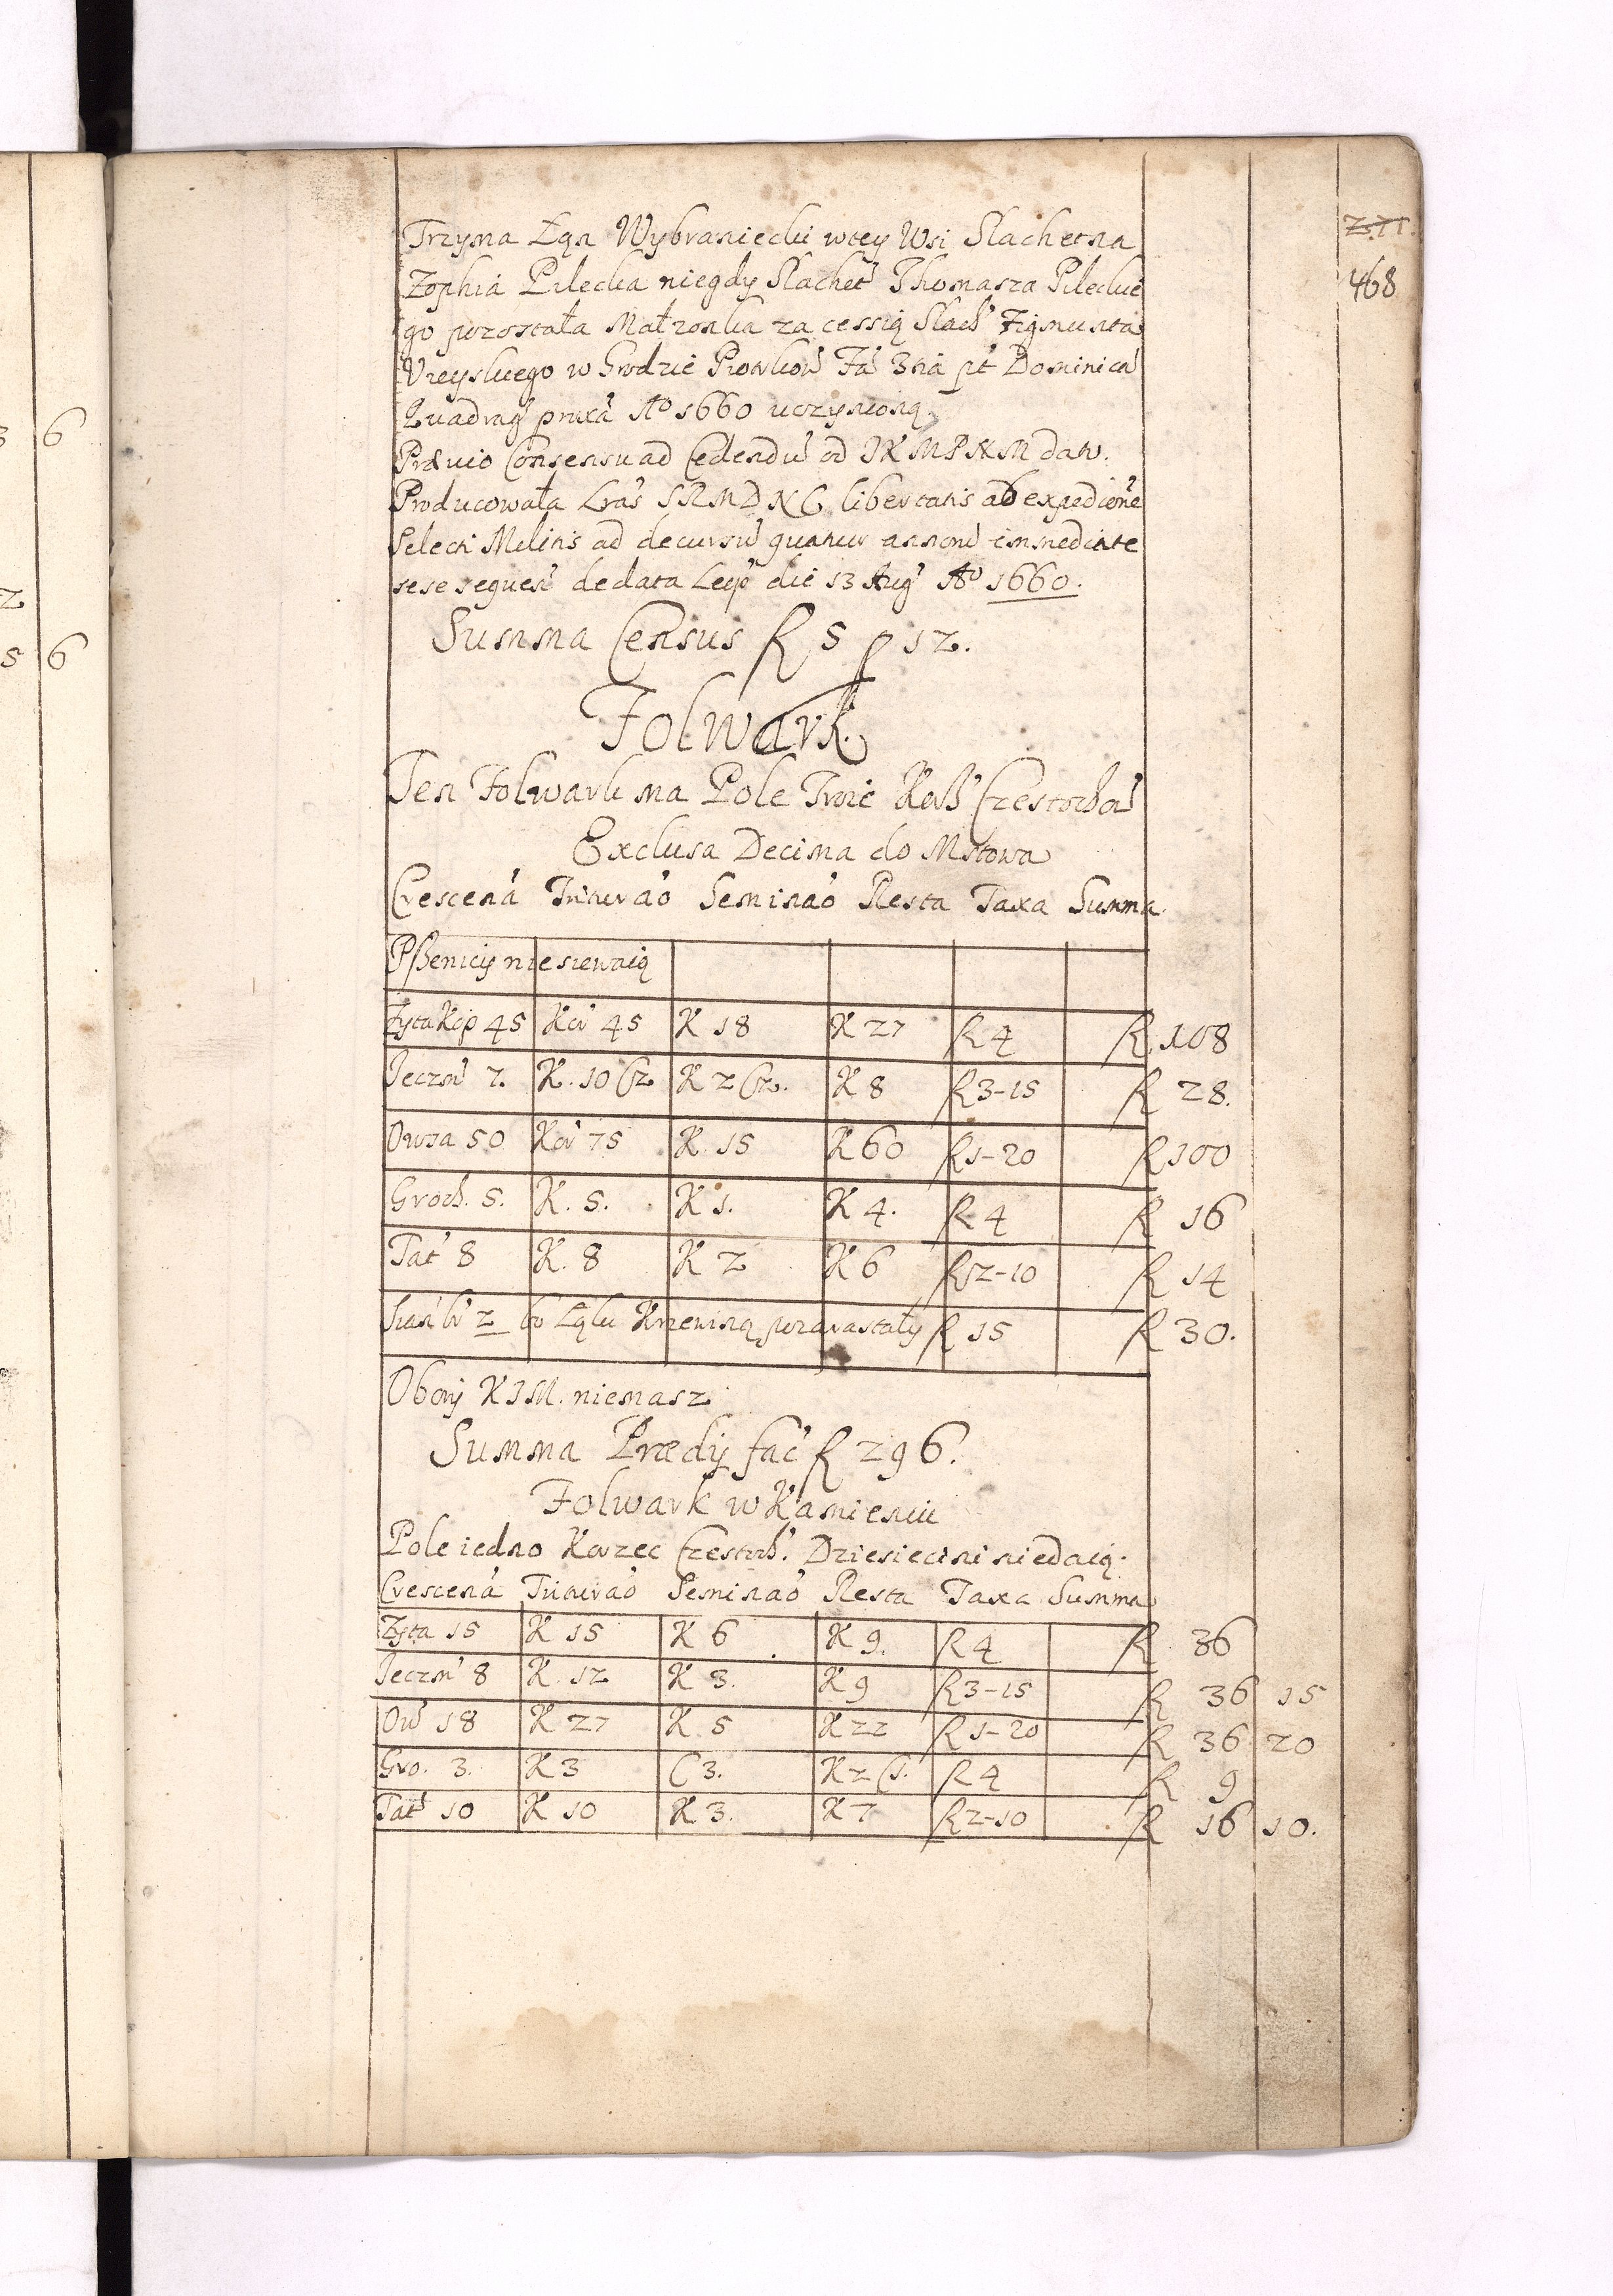 271.
468
Trzyma Łąn Wybraniecki wtey Wsi Slachetna
Zophia Pilecka niegdy Slachet Thomasza Pileckie
go pozostała Małzonka za cessią Slach Zigmunta
Vreyskiego w Grodzie Piotrkow Fa 3tia pt Dominica
Quadrag proxa Ao 1660 uczynioną.
Prævio Consensu ad Cedendu od JKMPNM dato.
Producowała Lras SRMDNC libertatis ab expedicione
Selecti Militis ad decursu quatuor annoru immediate
sese sequen de data die 13 Aug Ao 1660.
Summa Census f 5 g 12.
Folwark.
Ten Folwark ma Pole Troie Czestocho
Exclusa Decima do Mstowa
Crescena Triturao Seminao Resta Taxa Summa
Pszenicy nie siewaią
Zyta Kop 45 Kor 45 K 18 K 27 f 4 f 108
Jeczm 7. K. 10 Cz K 2 Cz. K 8 f 3-15 f 28.
Owsa 50 Kor 75 K. 15 K 60 f 1-20 f 100
Groch. 5. K. 5. K 1. K 4. f 4 f 16
Tat 8 K. 8 K 2 K 6 f 2-10 f 14
Sian 2 bo Łąki Krzewiną pozarastały f 15 f 30.
Obory KJM. niemasz
Summa Prædij fac f 296.
Folwark w Kamieniu
Pole iedno Korzec Czestoch. Dziesiecini niedaią.
Crescena Triturao Seminao Resta Taxa Summa
Zyta 15 K 15 K 6 K 9. f 4 f 36
Jeczm 8 K. 12 K 3. K 9 f 3-15 f 36 15
Ow 18 K 27 K 5 K 22 f 1-20 f 36 20
Gro. 3. K 3 C 3. K 2 C 1. f 4 f 9
Tat 10 K 10 K 3. K 7 f 2-10 f 16 10.